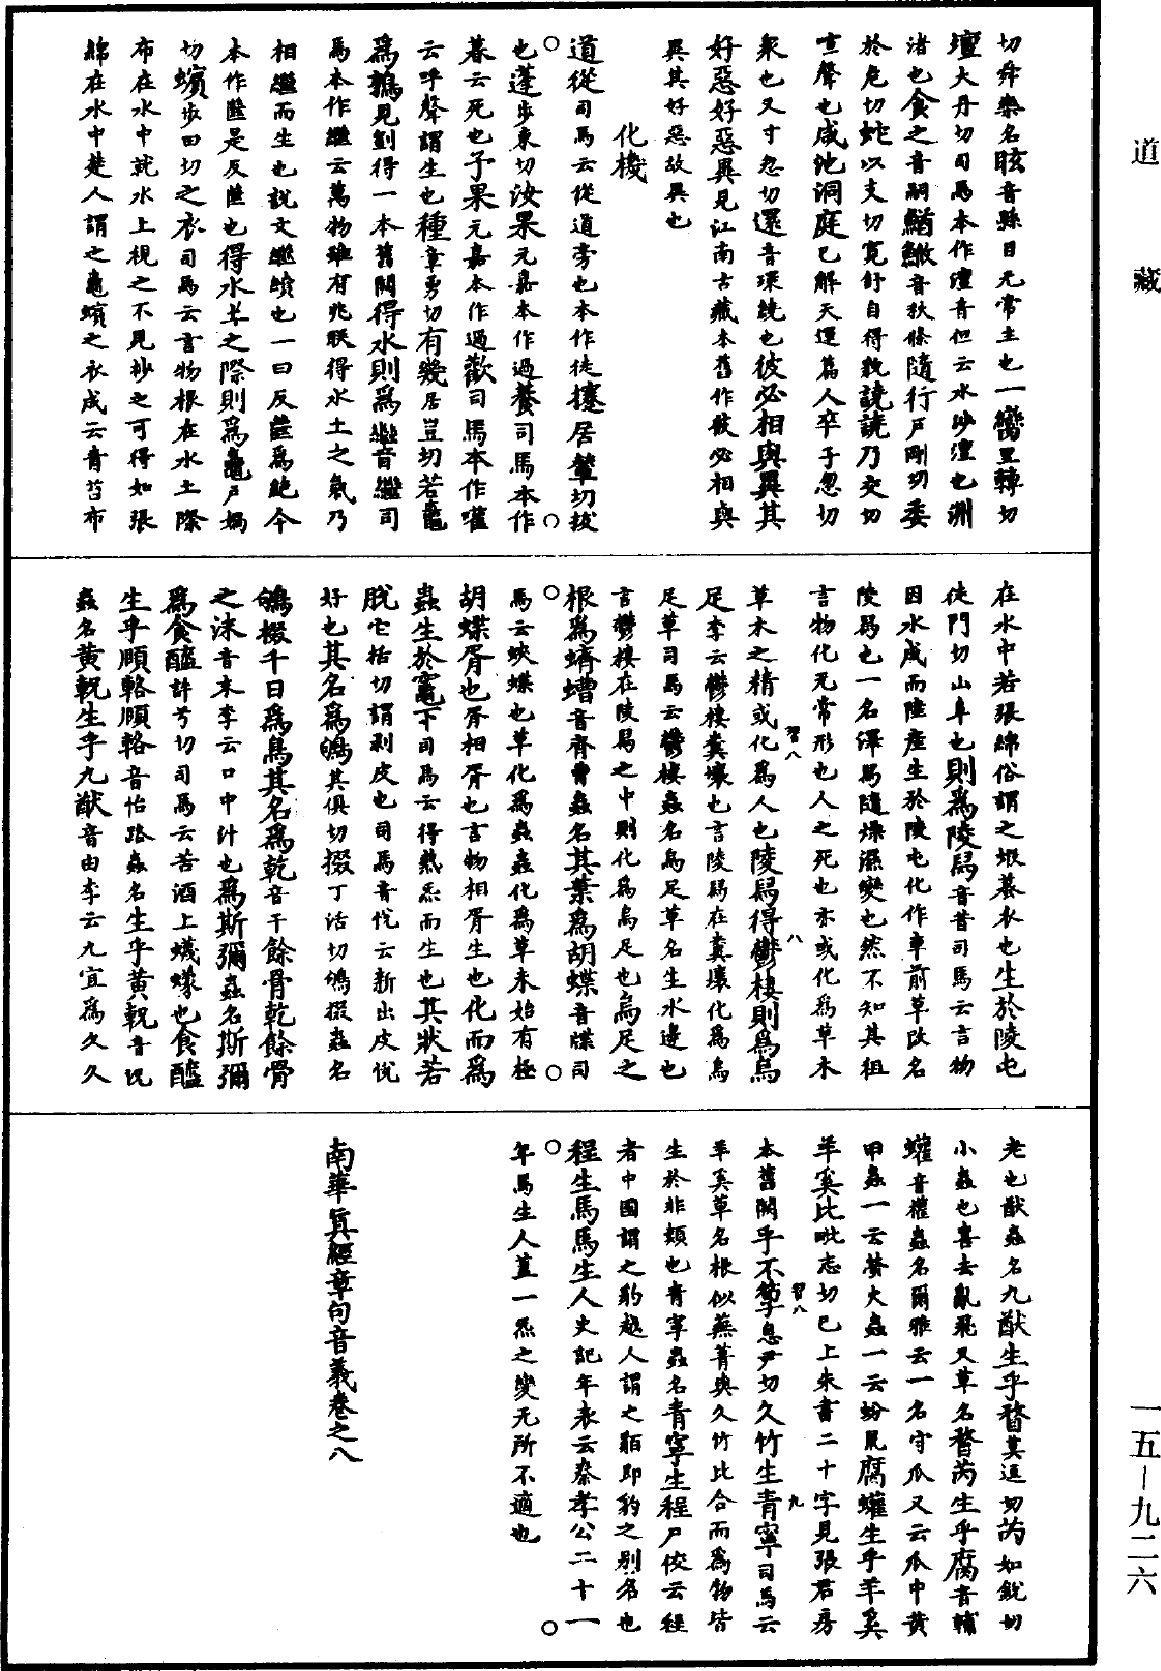 切舜樂名眩音縣目无常主也一巒里轉切
壇大丹切司馬本作澶音但云水沙澶也洲
渚也食之音嗣鰌鰷音狄條隨行戸剛切委
於危切蛇以支切寬舒自得貌譊譊乃交切
諠聲也咸池洞庭已解天運篇人卒子忽切
衆也又寸忽切還音環繞也彼必相與異其
好惡好惡異見江南古藏本舊作彼必相與
異其好惡故異也
化機
道從司馬云從道旁也本作徒攓居輦切拔
也蓬步東切汝果元嘉本作過養司馬本作
暮云死也予果元嘉本作過歡司馬本作嚾
云呼聲謂生也種章勇切有幾居豈切若鼃
爲鶉見劉得一本舊闕得水則爲㡭音繼司
馬本作繼云萬物雖有兆朕得水土之氣乃
相繼而生也説文繼續也一曰反㡭爲絶今
本作㡭是反㡭也得水土之際則爲鼃戸媧
切蠙步田切之衣司馬云言物根在水土際
布在水中就水上視之不見抄之可得如張
綿在水中楚人謂之鼃蠙之衣成云青苔布
在水中若張綿俗謂之蝦蟇衣也生於陵屯
徒門切山阜也則爲陵舄音昔司馬云言物
因水成而陸產生於陵屯化作車前草改名
陵舄也一名澤舄隨燥濕變也然不知其祖
言物化无常形也人之死也亦或化爲草木
草木之精或化爲人也陵舄得鬱棲則爲烏
足李云鬱棲糞壤也言陵舄在糞壤化爲烏
足草司馬云鬱棲蟲名烏足草名生水邊也
言鬱棲在陵舄之中則化爲烏足也烏足之
根爲蠐螬音齊曹蟲名其葉爲胡蝶音牒司
馬云蛺蝶也草化爲蟲蟲化爲草未始有極
胡蝶胥也胥相胥也言物相胥生也化而爲
蟲生於竈下司馬云得熱炁而生也其狀若
脫它括切謂剥皮也司馬音悅云新出皮悅
好也其名爲鴝其俱切掇丁活切鴝掇蟲名
鴝掇千日爲鳥其名爲乾音干餘骨乾餘骨
之沫音末李云口中汁也爲斯彌蟲名斯彌
爲食醯許兮切司馬云苦酒上蠛蠓也食醯
生乎頤輅頤輅音怡路蟲名生乎黄軦音况
蟲名黄軦生乎九猷音由李云九宜爲久久
老也猷蟲名九猷生乎瞀莫逗切芮如鋭切
小蟲也喜去亂飛又草名瞀芮生乎腐音輔
蠸音權蟲名爾雅云一名守瓜又云瓜中黄
甲蟲一云螢火蟲一云蚡鼠腐蠸生乎羊奚
羊奚比毗志切已上朱書二十字見張君房
本舊闕乎不箰息尹切久竹生青寧司馬云
羊奚草名根似蕪菁與久竹比合而爲物皆
生於非類也青寧蟲名青寧生程尸佼云程
者中國謂之豹越人謂之貊即豹之别名也
程生馬馬生人史記年表云秦孝公二十一
年馬生人蓋一炁之變无所不適也
南華真經章句音義卷之八
習八
八
習八
九
道藏
一五—九二六